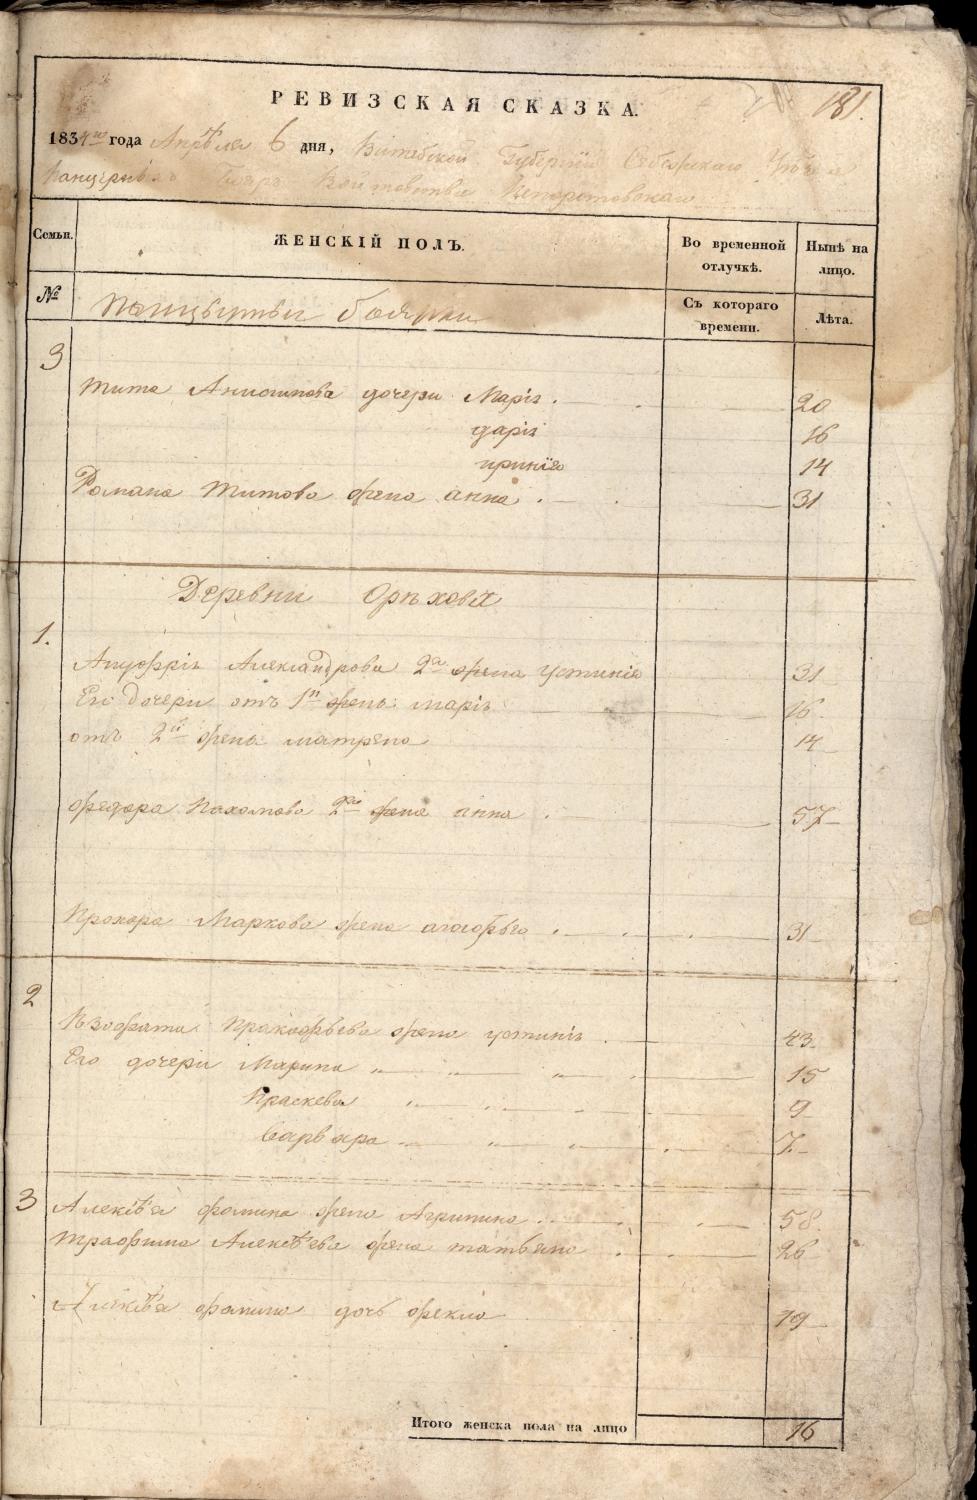 181.
РЕВИЗСКАЯ СКАЗКА.
1834го года Апрѣля 6 дня, Витебской Губернiи Себежскаго Уѣзда
Панцерныхъ Бояръ Войтовства Непоротовскаго
Семьи. ЖЕНСКІЙ ПОЛЪ. Во временной отлучкѣ. Нынѣ на лицо.
№ Панцырныи боярки Съ котораго времени. Лѣта.
3
Тита Анисимова дочери Марiя 20
дарiя 16
ириния 14
Романа Титова жена анна 31
Деревни Орѣховки
1.
Александрова 2я жена Устинiя 31
Его дочери отъ 1й жены марiя 16
отъ 2й жены матрена 14
Федора Пахомова 2я жена анна 57
Прохора Маркова жена агафья 31
2
Прокофьева жена устинiя 43
Его дочери Марина 15
Праскева 9
варвара 7
3 Алексѣя фомина жена Агрипина 58
трафима Алексѣева жена татьяна 26
Алексѣя фомина дочь фекла 19
Итого женска пола на лицо 16